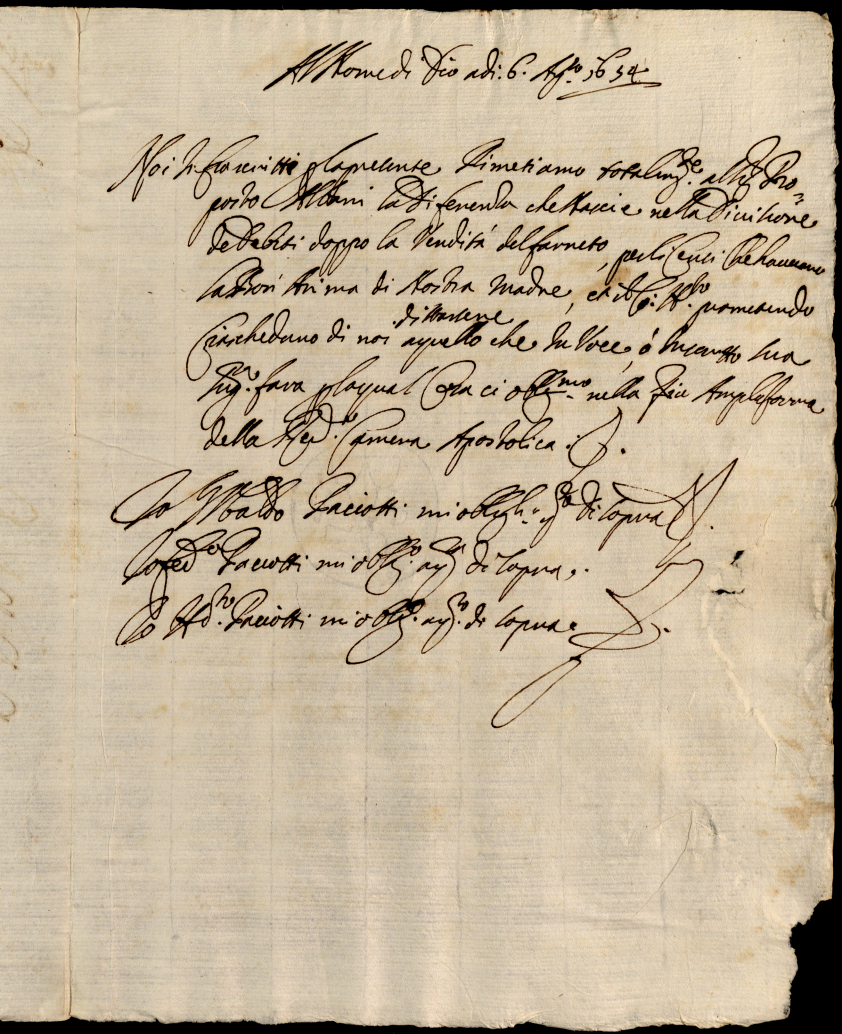 Al Nome di Dio adi: 6. Ag.to 1654
Noi Infrascritti p la presente Rimetiamo totalm.te al Sig. Pro-
posto Albani la Diferenza che Nascie nella Divisione
de Debiti doppo la Vendita del farneto, per li Censi che haveano
la Dori Anima di Nostra Madre, et il prometendo
Ciascheduno di noi di stare a quello che In Voce, ó Inscritto sua
Sig.ria fara p la qual Cosa ci oblig.mo nella piu Ampla forma
della Rev. Camera Apostolica.
Io Ubaldo Paciotti mi obligo q.to di sopra
Io fed.co Paciotti mi obligo a q.to di sopra.
Io Paciotti mi obligo a q.to di sopra